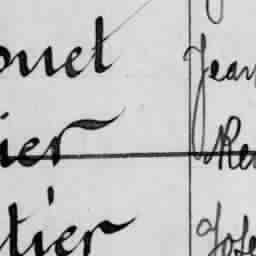 onet Jean
ier Re
tier Jose